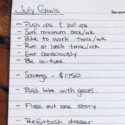 July Goals
- Push ups & pull ups
- Surf minimum twice/wk
- Bike to work twice/wk
- Run at lunch twice/wk
- Eat consciously
- Be in-tune
- Savings - $1750
- Build bike with gears
- Flesh out one story
- Refurbish dresser